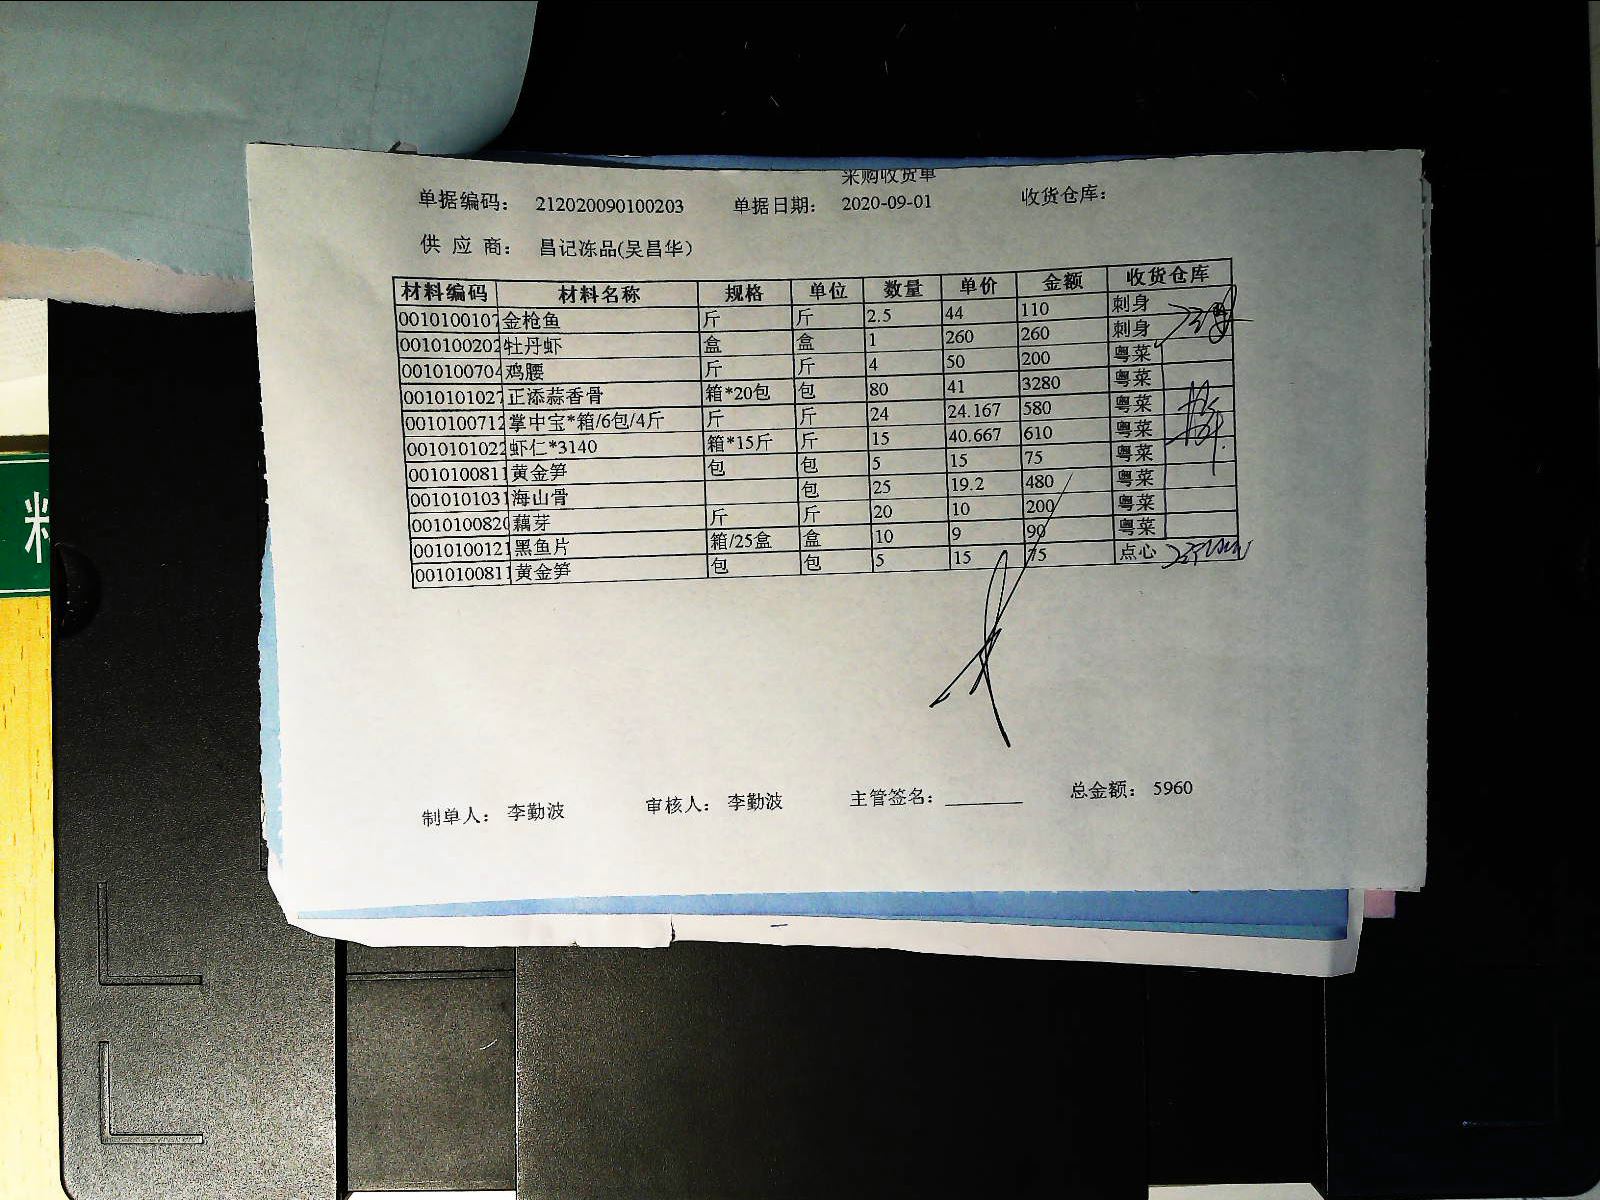 采购收货单
单据编码： 212020090100203 单据日期： 2020-09-01 收货仓库：
供 应 商： 昌记冻品(吴昌华）
材料编码 材料名称 规格 单位 数量 单价 金额 收货仓库
0010100107 金枪鱼 斤 斤 2.5 44 110 刺身
0010100202 牡丹虾 盒 盒 1 260 260 刺身
0010100704 鸡腰 斤 斤 4 50 200 粤菜
0010101027 正添蒜香骨 箱*20包 包 80 41 3280 粤菜
0010100712 掌中宝*箱/6包/4斤 斤 斤 24 24.167 580 粤菜
0010101022 虾仁*3140 箱*15斤 斤 15 40.667 610 粤菜
0010100811 黄金笋 包 包 5 15 75 粤菜
0010101031 海山骨 包 25 19.2 480 粤菜
0010100820 藕芽 斤 斤 20 10 200 粤菜
0010100121 黑鱼片 箱/25盒 盒 10 9 90 粤菜
0010100811 黄金笋 包 包 5 15 75 点心
制单人： 李勤波 审核人： 李勤波 主管签名：________ 总金额： 5960